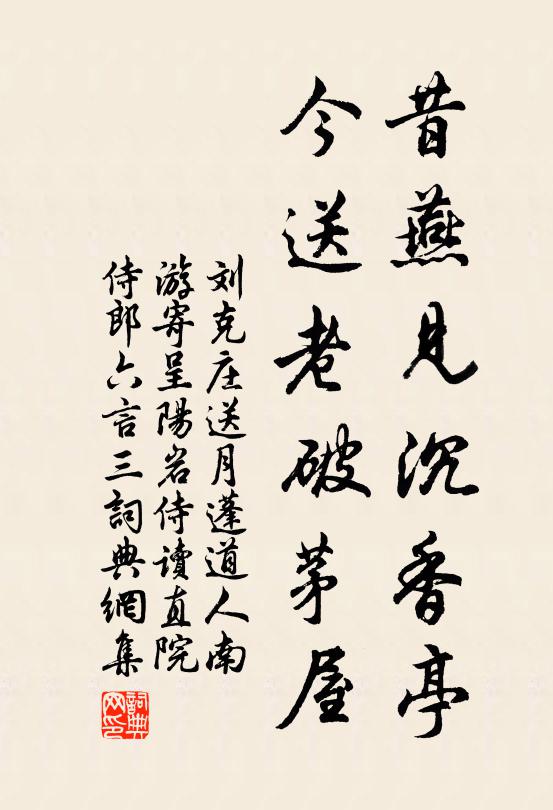 昔燕見沉香亭
今送老破茅屋
刘克庄送月蓬道人南
游寄呈陽岩侍讀直院
侍郎六言三詞典網集
詞典网印